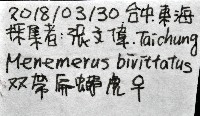 2018/03/30 台中東海
採集者:張文偉.Taichung
Menemerus bivittatus
双帶扁蠅虎♀